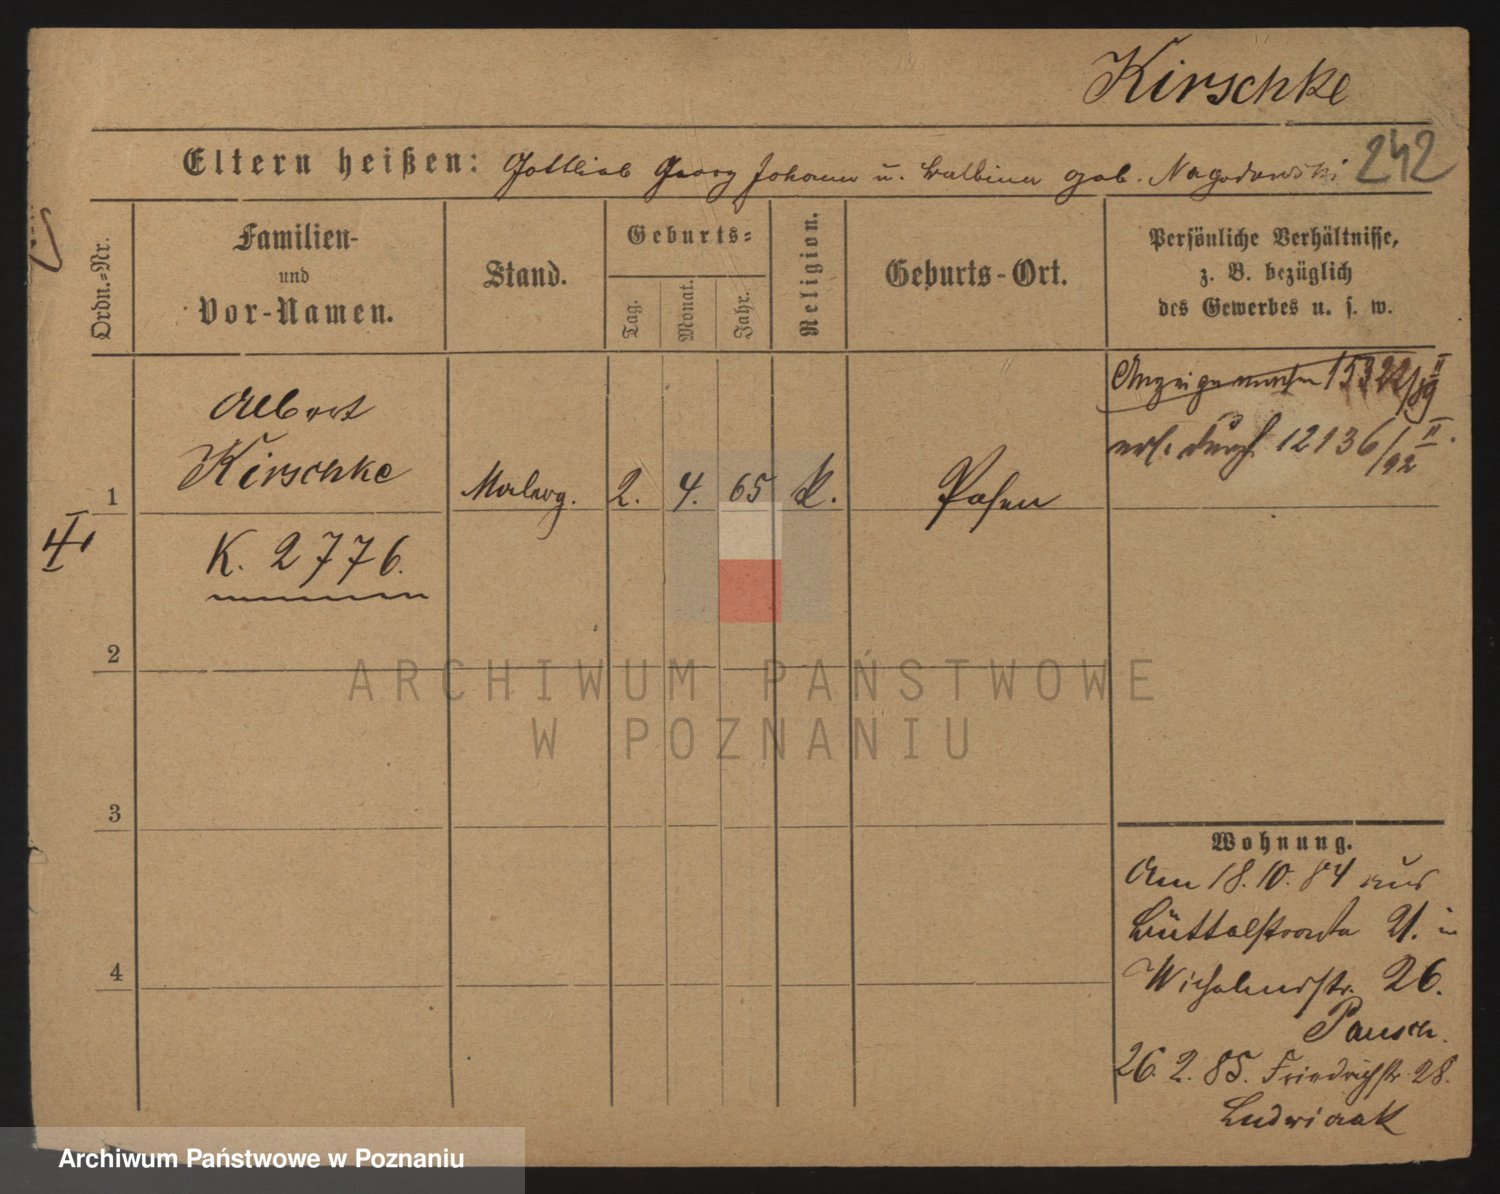 Kirschke
242
Eltern heißen: Gottlieb Georg Johann u. Balbina geb. Nagodowski
Ordn.=Nr.
Familien-
und
Vor-Namen.
Stand.
Geburts=
Tag.
Monat.
Jahr.
Religion.
Geburts-Ort.
Persönliche Verhältnisse,
z. B. bezüglich
des Gewerbes u. s. w.
Albert
Kirschke
1
2. 4. 65 k. Posen
15322/II 89
erl. durch 12136/II 92
K. 2776.
2
3
4
Wohnung.
Am 18.10.84 aus
Büttelstraße 21. in
Wilhelmstr. 26.
Pausch.
26. 2. 85. Friedrichstr. 28.
Ludwiczak
ARCHIWUM PAŃSTWOWE
W POZNANIU
Archiwum Państwowe w Poznaniu